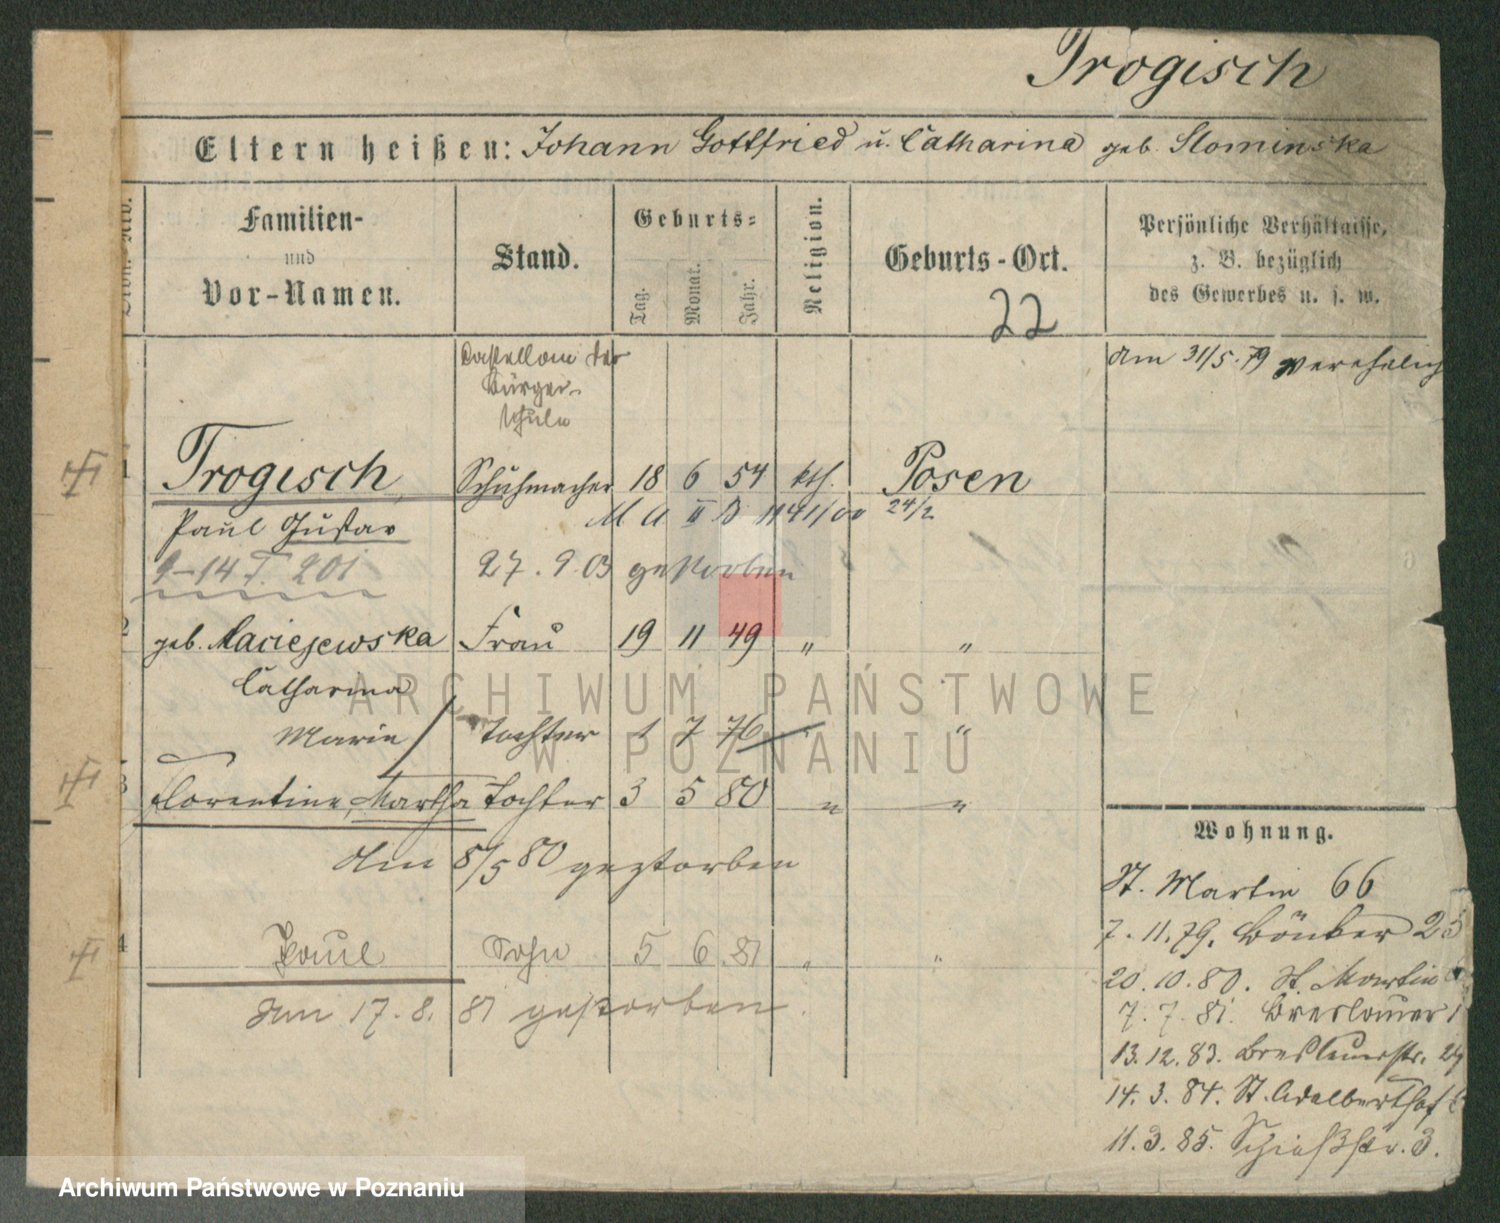 Trogisch
Eltern heißen: Johann Gottfried u. Catharina geb. Slominska
Familien-
und
Vor-Namen.
Stand.
Geburts-
Tag.
Monat.
Jahr.
Religion.
Geburts-Ort.
22
Persönliche Verhältnisse,
z. B. bezüglich
des Gewerbes u. s. w.
Castellan der
Bürger-
schule
Am 31/5. 79 verehelich
1 Trogisch Schuhmacher 18 6 54 kth. Posen
Paul Gustav
24/2
9-14 F. 201 27. 9 03 gestorben
2 geb. Maciejewska Frau 19 11 49 " "
Catharina
Marie Tochter 1 7 76 "
3 Florentine, Martha Tochter 3 5 80 " "
Am 8/5 80 gestorben
4 Paul Sohn 5 6 81 " "
Am 17. 8. 81 gestorben.
Wohnung.
St. Martin 66
7. 11. 79. Bäcker 25
20. 10. 80. St. Martin
7. 7. 81. Breslauer
13. 12. 83. Breslauerstr.
14. 3. 84. St. Adalberthof
11. 3. 85. Schießstr. 3.
ARCHIWUM PAŃSTWOWE
W POZNANIU
Archiwum Państwowe w Poznaniu